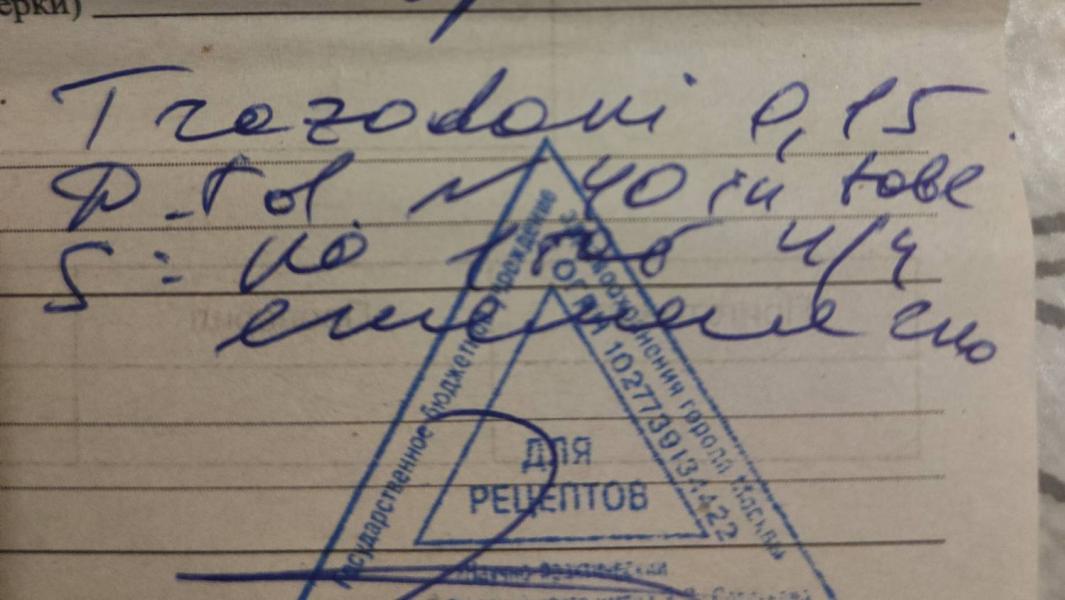 ерки)
Trazodoni 0,15
D.t.d. N 40 in tabl
S: по 1 таб
ежедневно
Государственное бюджетное учреждение
здравоохранения города Москвы
ОГРН 1027739134422
ДЛЯ
РЕЦЕПТОВ